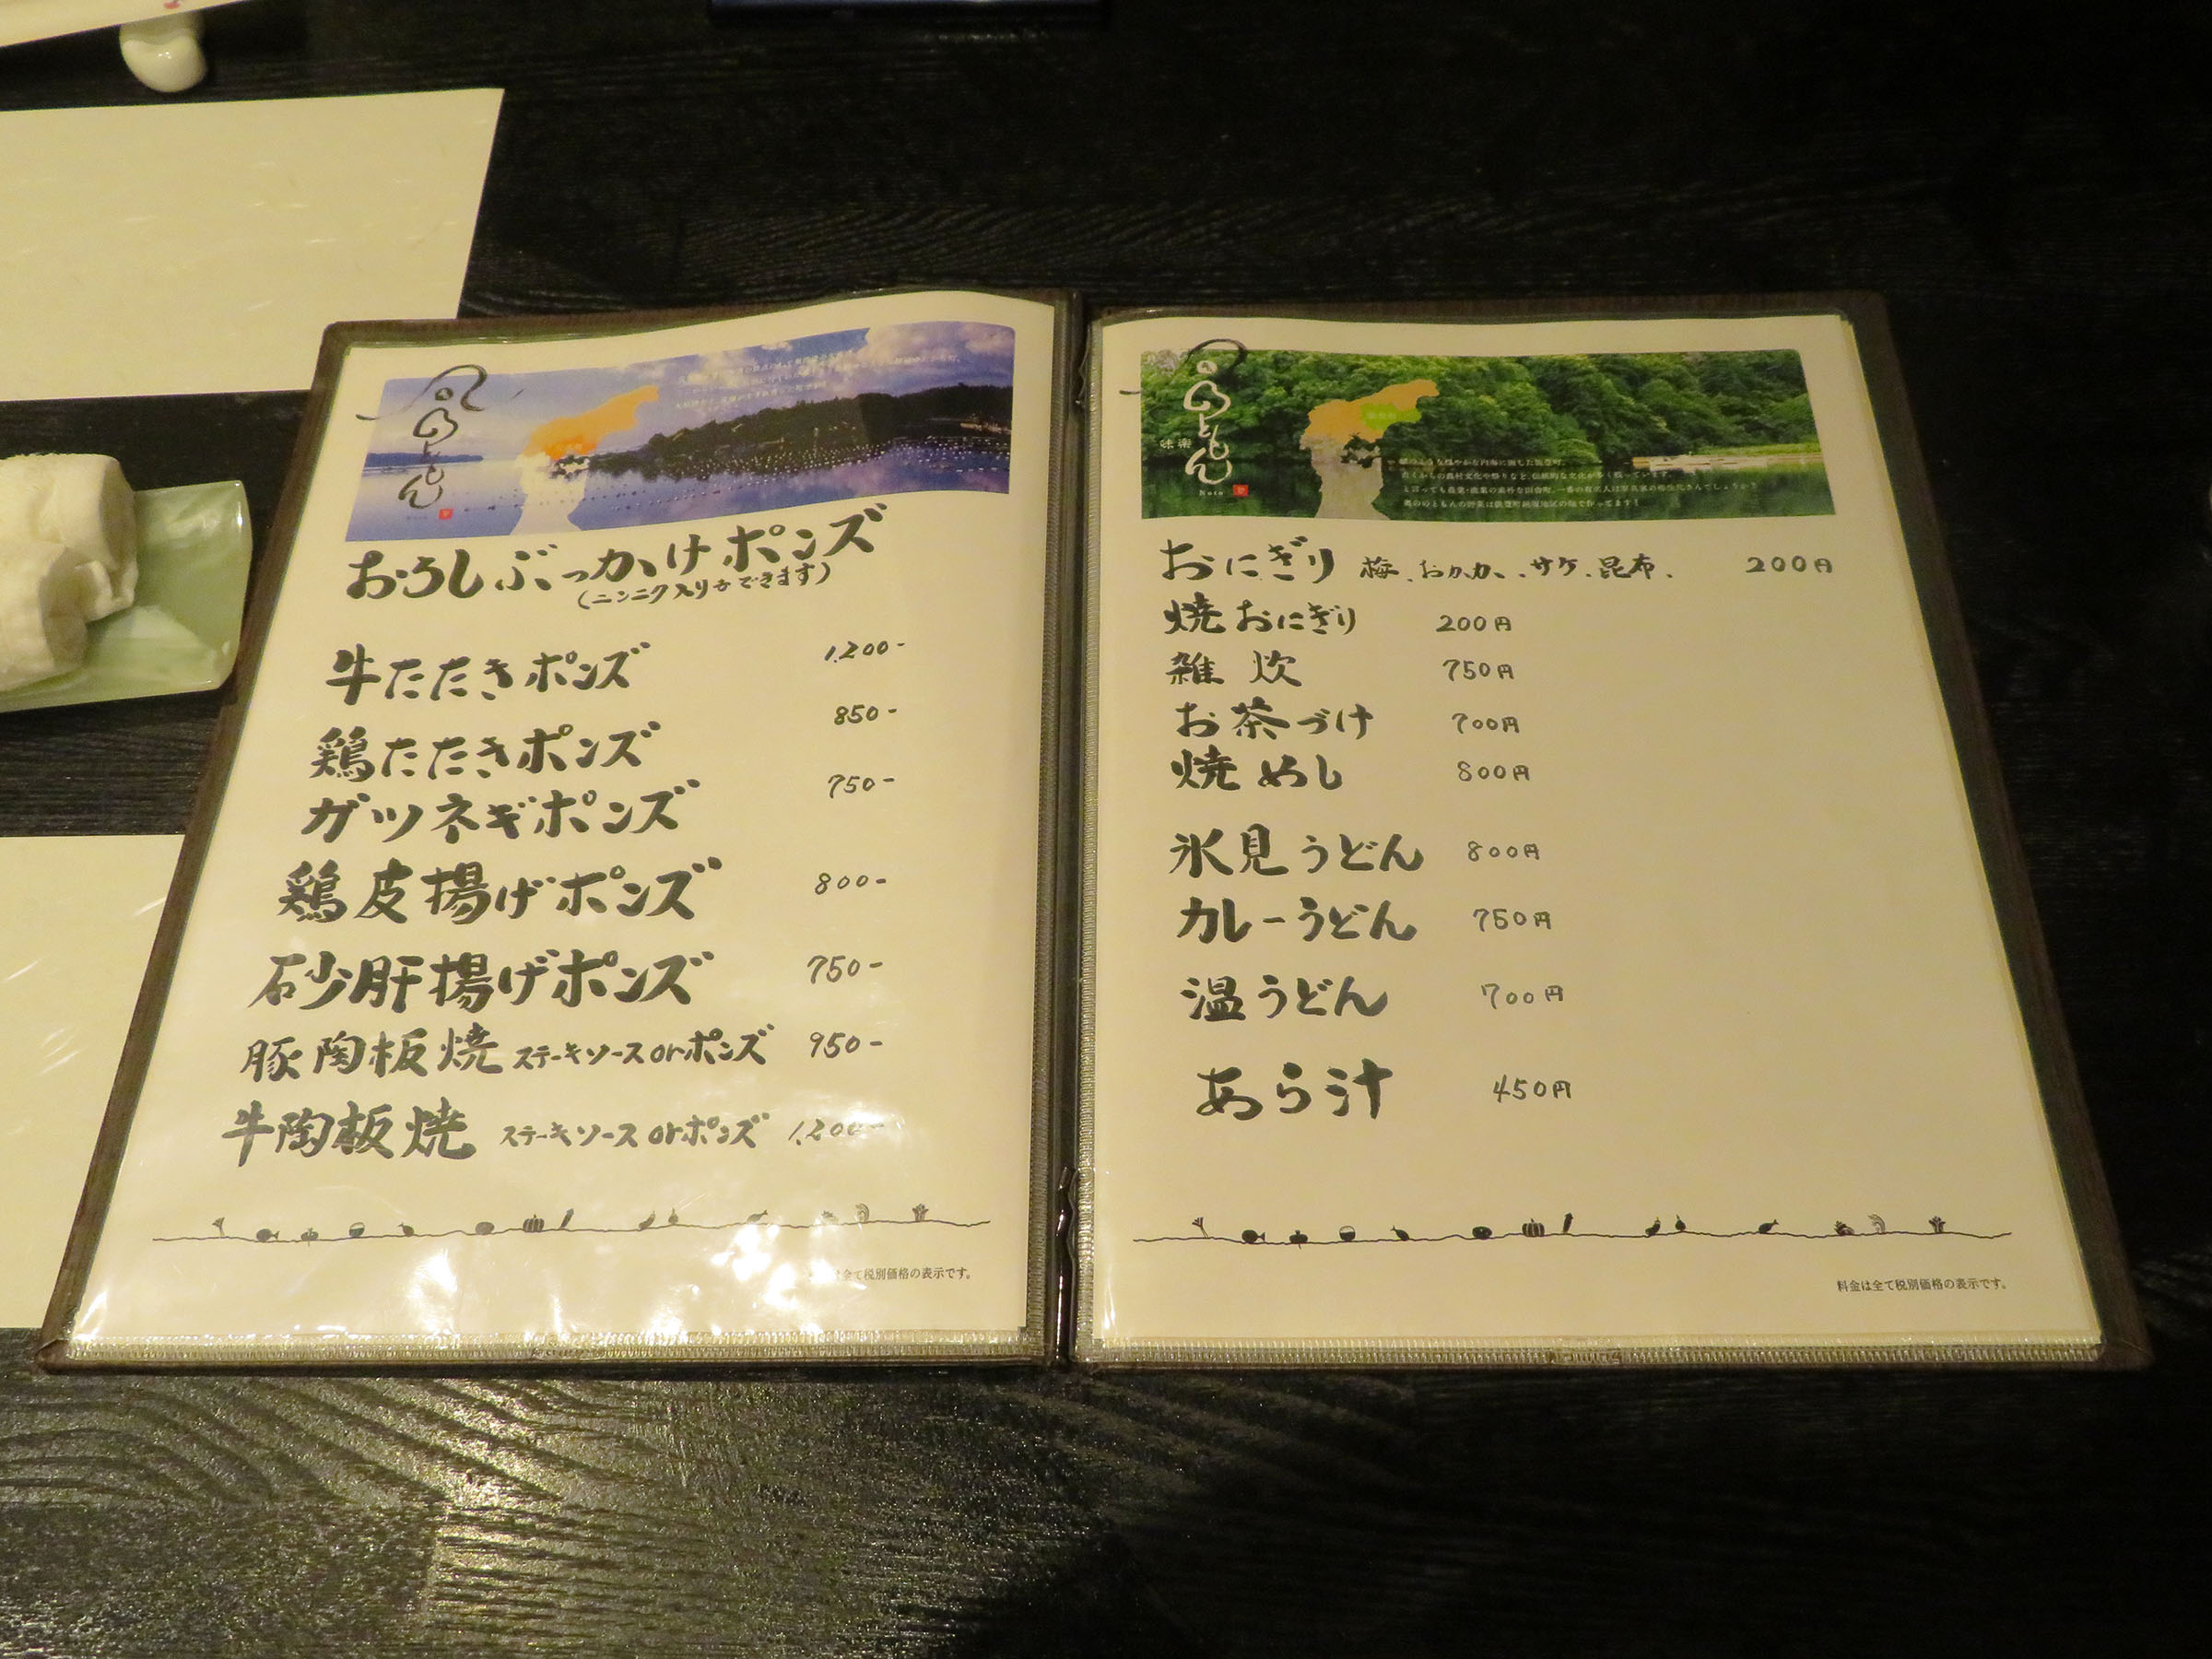 のともん
おろしぶっかけポンズ
(ニンニク入りもできます)
牛たたきポンズ 1,200-
鶏たたきポンズ 850-
ガツネギポンズ 750-
鶏皮揚げポンズ 800-
砂肝揚げポンズ 750-
豚陶板焼 ステーキソースorポンズ 950-
牛陶板焼 ステーキソースorポンズ 1,200-
は全て税別価格の表示です。
味楽
のともん
Noto
おにぎり 梅、おかか、サケ、昆布、 200円
焼おにぎり 200円
雑炊 750円
お茶づけ 700円
焼めし 800円
氷見うどん 800円
カレーうどん 750円
温うどん 700円
あら汁 450円
料金は全て税別価格の表示です。